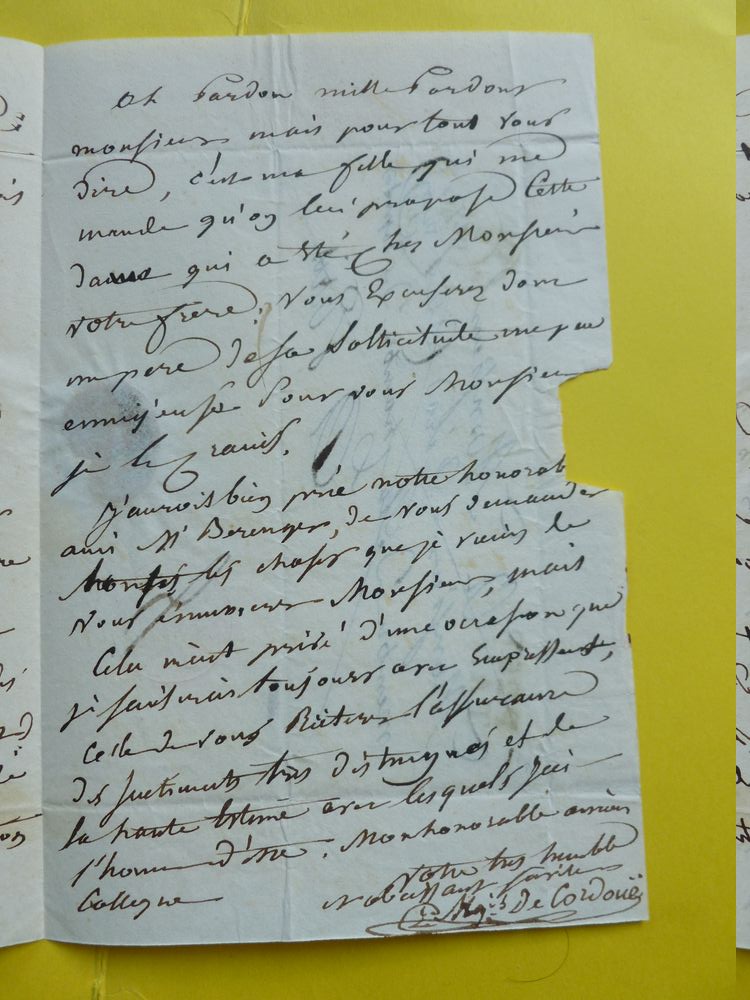 Oh Pardon mille Pardons
monsieur mais pour tout vous
dire, c'est ma fille qui me
mande qu'on lui propose Cette
dame qui a été Chez Monsieur
votre frere. Vous Excuserez donc
un pere de sa Sollicitude
ennuyeuse Pour vous Monsieur
je le
J'aurois bien prié notre honorab
ami Mr Berenger, de vous demander
les choses que je viens de
vous Monsieur, mais
Cela m'eut privé d'une occasion que
je saisirais toujours avec Empressement,
celle de vous Réiterer l'assurance
des sentiments très distingués et de
la haute Estime avec lesquels j'ai
l'honneur d'être. Mon honorable ancien
Collegue votre très humble
et obéissant
Le Mqis De Cordoüe